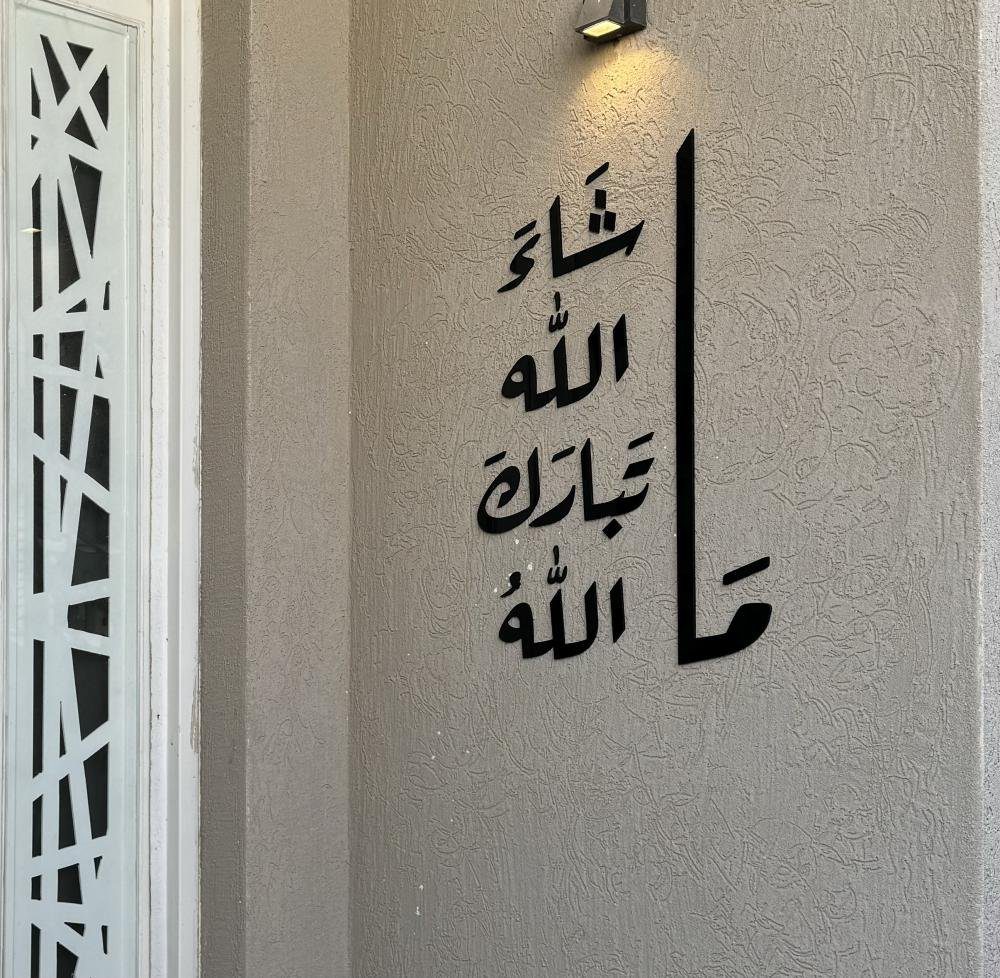 مَا
شَاءَ
اللّٰه
تَبارَكَ
اللّٰهُ